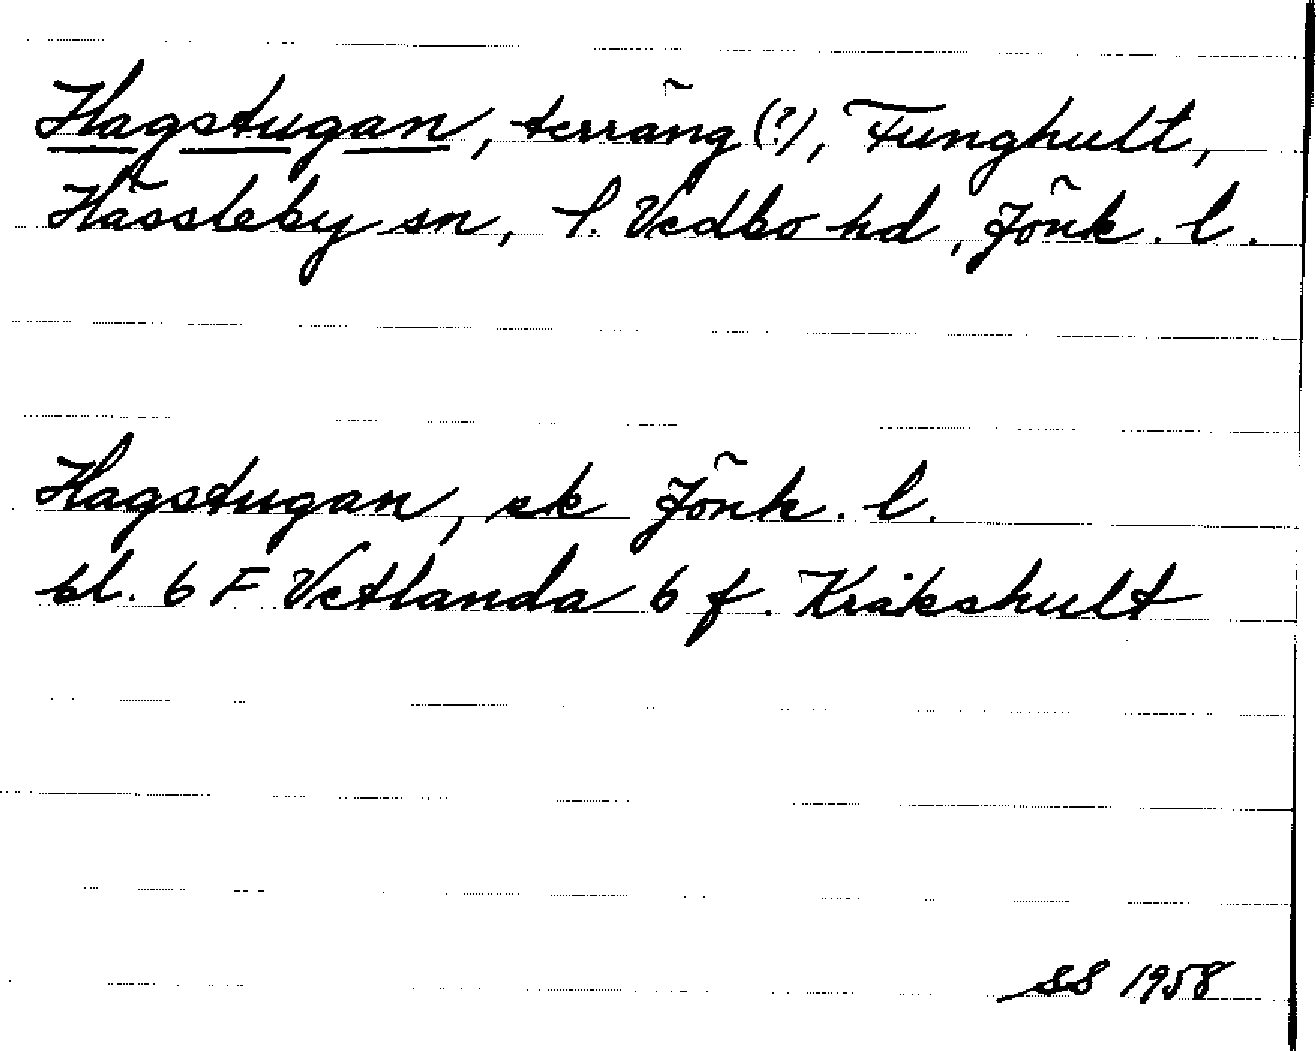 Hagstugan, terräng (?), Funghult,
Hässleby sn, S. Vedbo hd, Jönk. l.
Hagstugan, ek Jönk. l.
bl. 6 F Vetlanda 6 f. Kråkshult
SS 1958